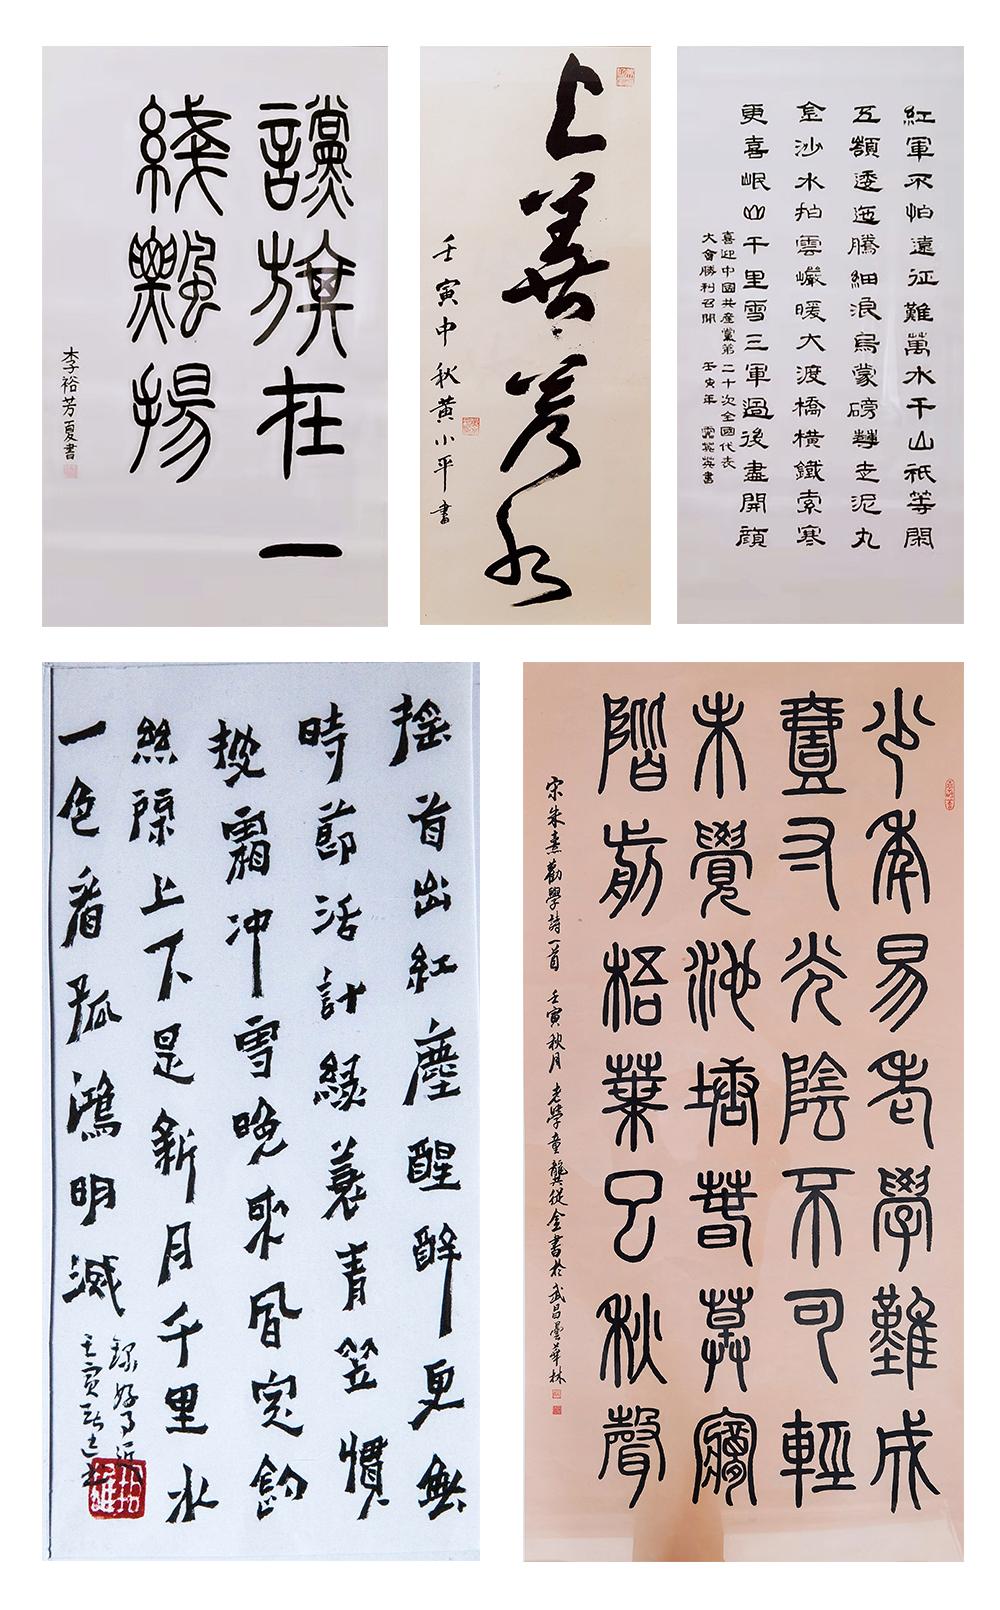 讜旗在一
綫飄揚
李裕芳夏書
上善若水
壬寅中秋黄小平書
紅軍不怕遠征難萬水千山祇等閑
五嶺逶迤騰細浪烏蒙磅礴走泥丸
金沙水拍雲巖暖大渡橋橫鐵索寒
更喜岷山千里雪三軍過後盡開顏
喜迎中國共産黨第二十次全國代表
大會勝利召開 壬寅年 英英書
摇首出紅塵醒醉更無
時節活計緑蓑青笠慣
披霜冲雪晚來風定釣
絲閑上下是新月千里水
一色看孤鴻明滅
録好事近
壬寅
少年易老學難成
壹寸光陰不可輕
未覺池塘春草夢
階前梧葉已秋聲
宋朱熹勸學詩一首 壬寅秋月 老學童龔從金書於武昌曇華林